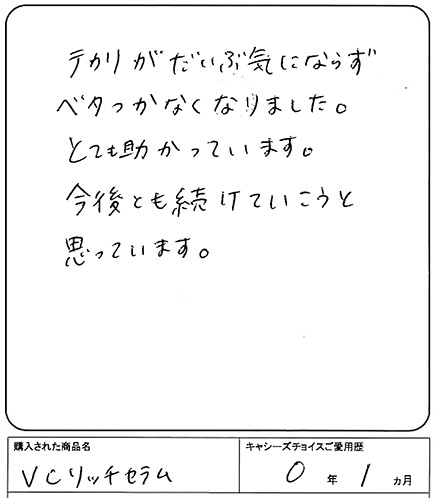 テカリがだいぶ気にならず
ベタつかなくなりました。
とても助かっています。
今後とも続けていこうと
思っています。
購入された商品名
キャシーズチョイスご愛用歴
VCリッチセラム
0年1ヵ月